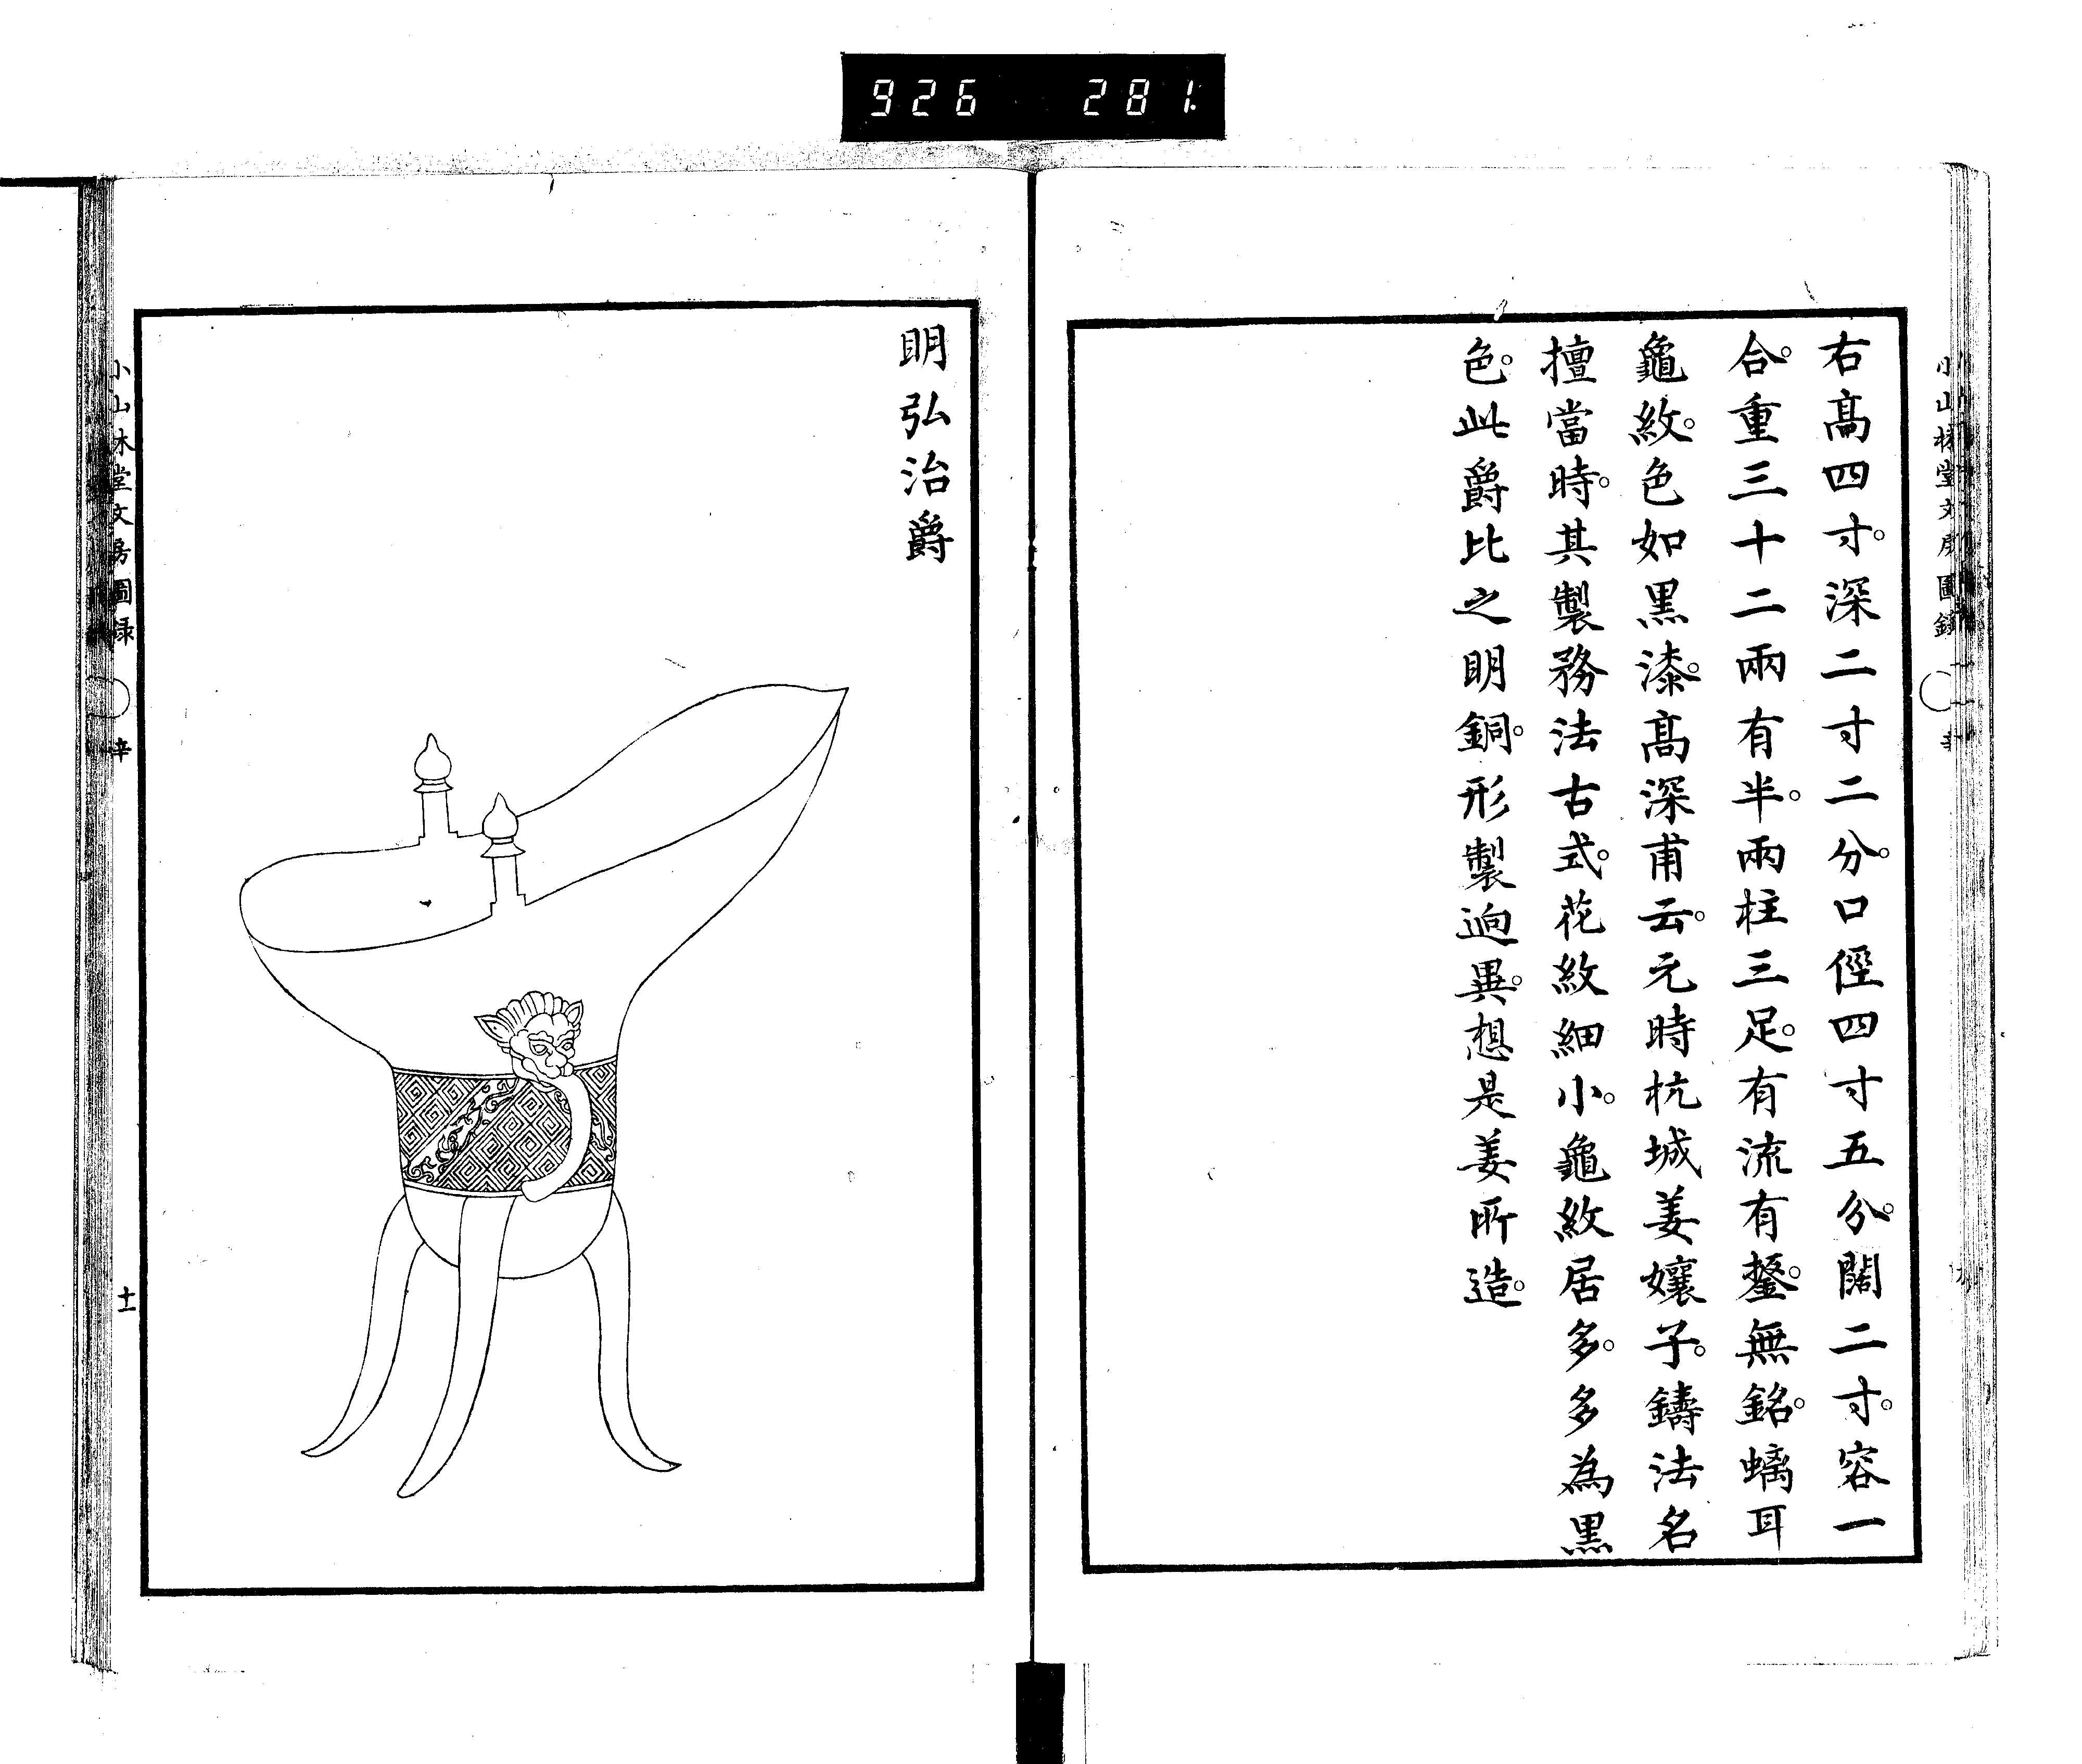 926 281.
右高四寸。深二寸二分。口徑四寸五分。闊二寸。容一
合。重三十二兩有半。兩柱三足。有流有鋬。無銘。螭耳
龜紋。色如黒漆。高深甫云。元時杭城姜孃子。鑄法名
擅當時。其製務法古式。花紋細小。龜紋居多。多為黒
色。此爵比之明銅。形製逈異。想是姜所造。
明弘治爵
小山林堂文房圖録 辛 十一